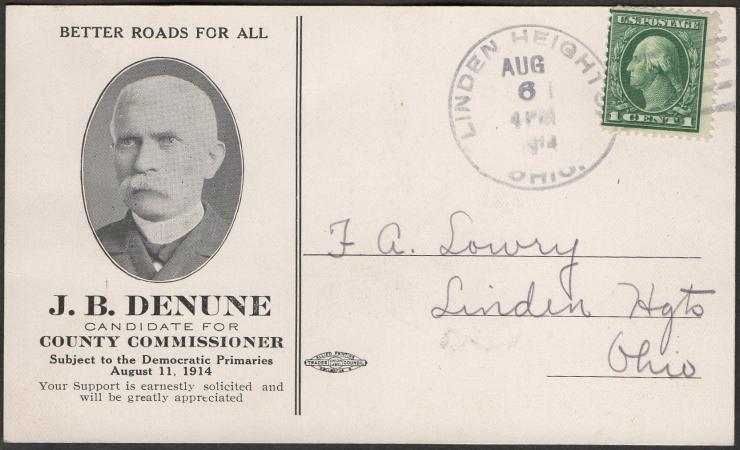 BETTER ROADS FOR ALL
J. B. DENUNE
CANDIDATE FOR
COUNTY COMMISSIONER
Subject to the Democratic Primaries
August 11, 1914
Your Support is earnestly solicited and
will be greatly appreciated
LINDEN HEIGHTS
AUG
6
4 PM
1914
OHIO.
U.S. POSTAGE
1 CENT 1
F. A. Lowry
Linden Hgts
Ohio
ALLIED PRINTING
TRADES COUNCIL